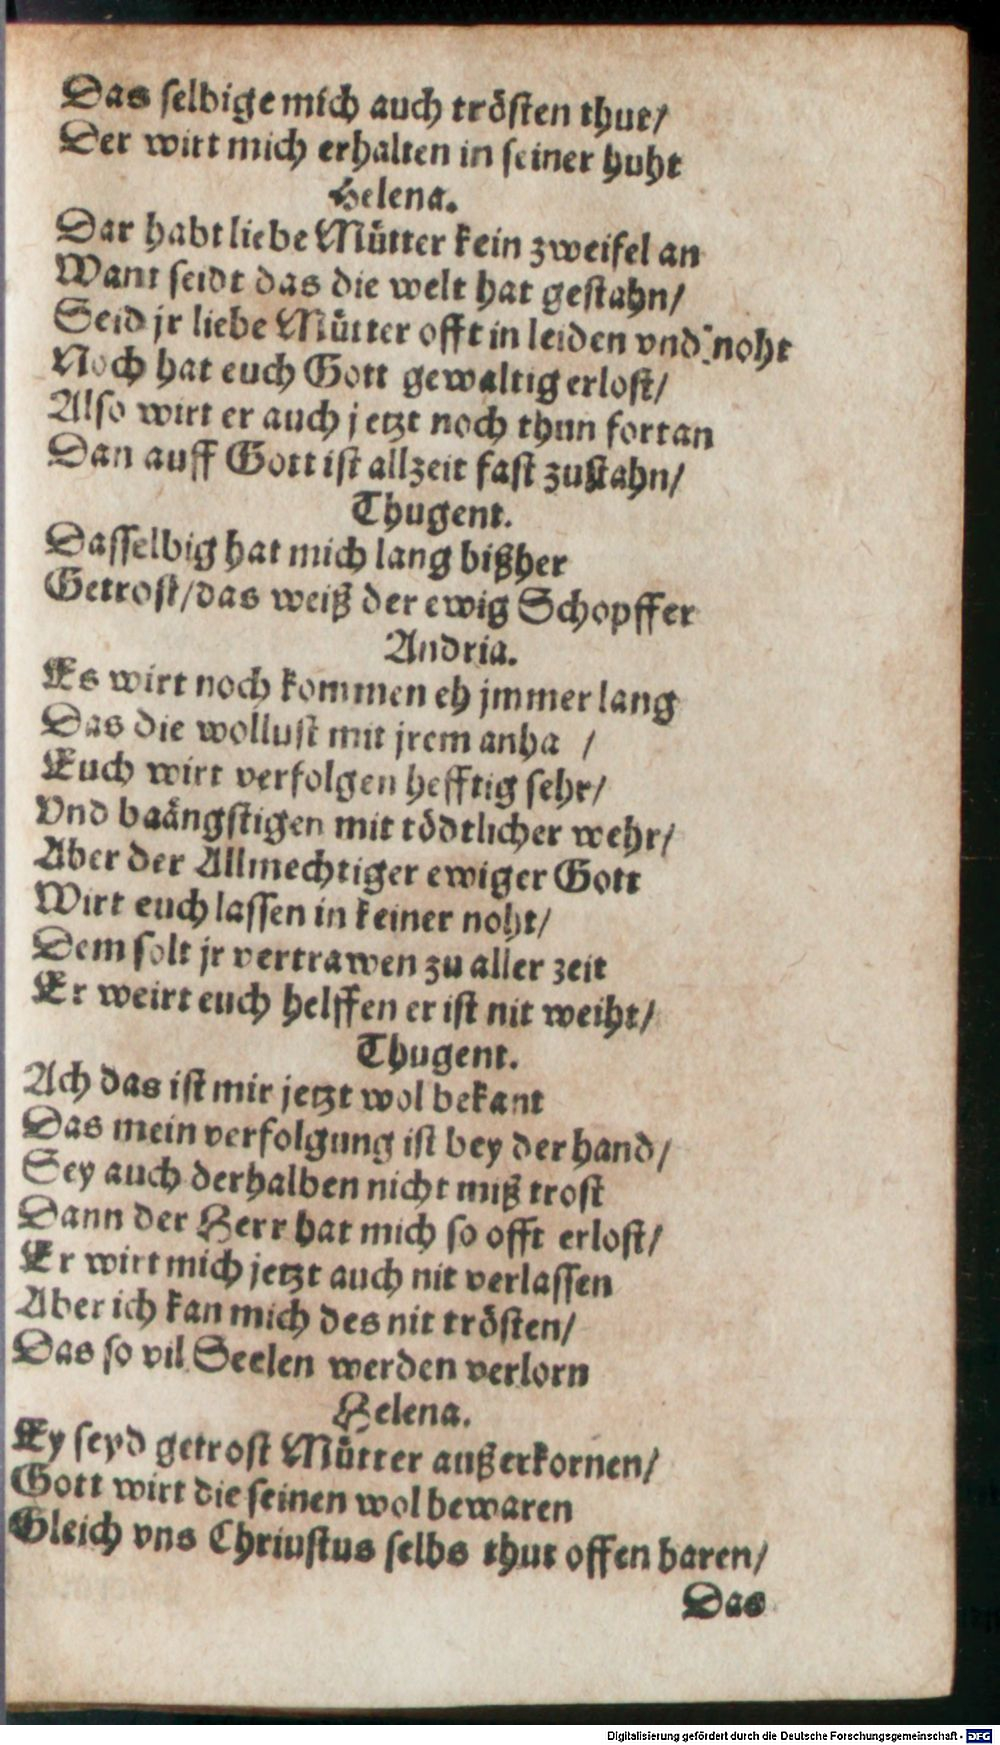 Das selbige mich auch trösten thut/
Der wirt mich erhalten in seiner huht
Helena.
Dar habt liebe Mütter kein zweifel an
Want seidt das die welt hat gestahn/
Seid jr liebe Mütter offt in leiden vnd noht
Noch hat euch Gott gewaltig erlost/
Also wirt er auch jetzt noch thun fortan
Dan auff Gott ist allzeit fast zustahn/
Thugent.
Dasselbig hat mich lang bißher
Getrost/das weiß der ewig Schopffer
Andria.
Es wirt noch kommen eh jmmer lang
Das die wollust mit jrem anha /
Euch wirt verfolgen hefftig sehr/
Vnd baängstigen mit tödtlicher wehr/
Aber der Allmechtiger ewiger Gott
Wirt euch lassen in keiner noht/
Dem solt jr vertrawen zu aller zeit
Er weirt euch helffen er ist nit weiht/
Thugent.
Ach das ist mir jetzt wol bekant
Das mein verfolgung ist bey der hand/
Sey auch derhalben nicht miß trost
Dann der Herr hat mich so offt erlost/
Er wirt mich jetzt auch nit verlassen
Aber ich kan mich des nit trösten/
Das so vil Seelen werden verlorn
Helena.
Ey seyd getrost Mütter außerkornen/
Gott wirt die seinen wol bewaren
Gleich vns Chriustus selbs thut offen baren/
Das
Digitalisierung gefördert durch die Deutsche Forschungsgemeinschaft - DFG